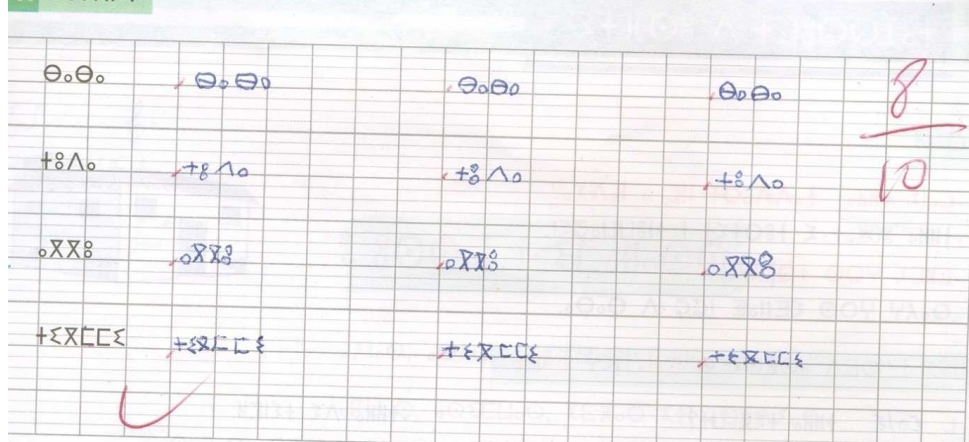 ⴱⴰⴱⴰ ⴱⴰⴱⴰ ⴱⴰⴱⴰ ⴱⴰⴱⴰ
ⵜⵓⴷⴰ ⵜⵓⴷⴰ ⵜⵓⴷⴰ ⵜⵓⴷⴰ
ⴰⴳⴳⵓ ⴰⴳⴳⵓ ⴰⴳⴳⵓ ⴰⴳⴳⵓ
ⵜⵉⴳⵎⵎⵉ ⵜⵉⴳⵎⵎⵉ ⵜⵉⴳⵎⵎⵉ ⵜⵉⴳⵎⵎⵉ
8
10